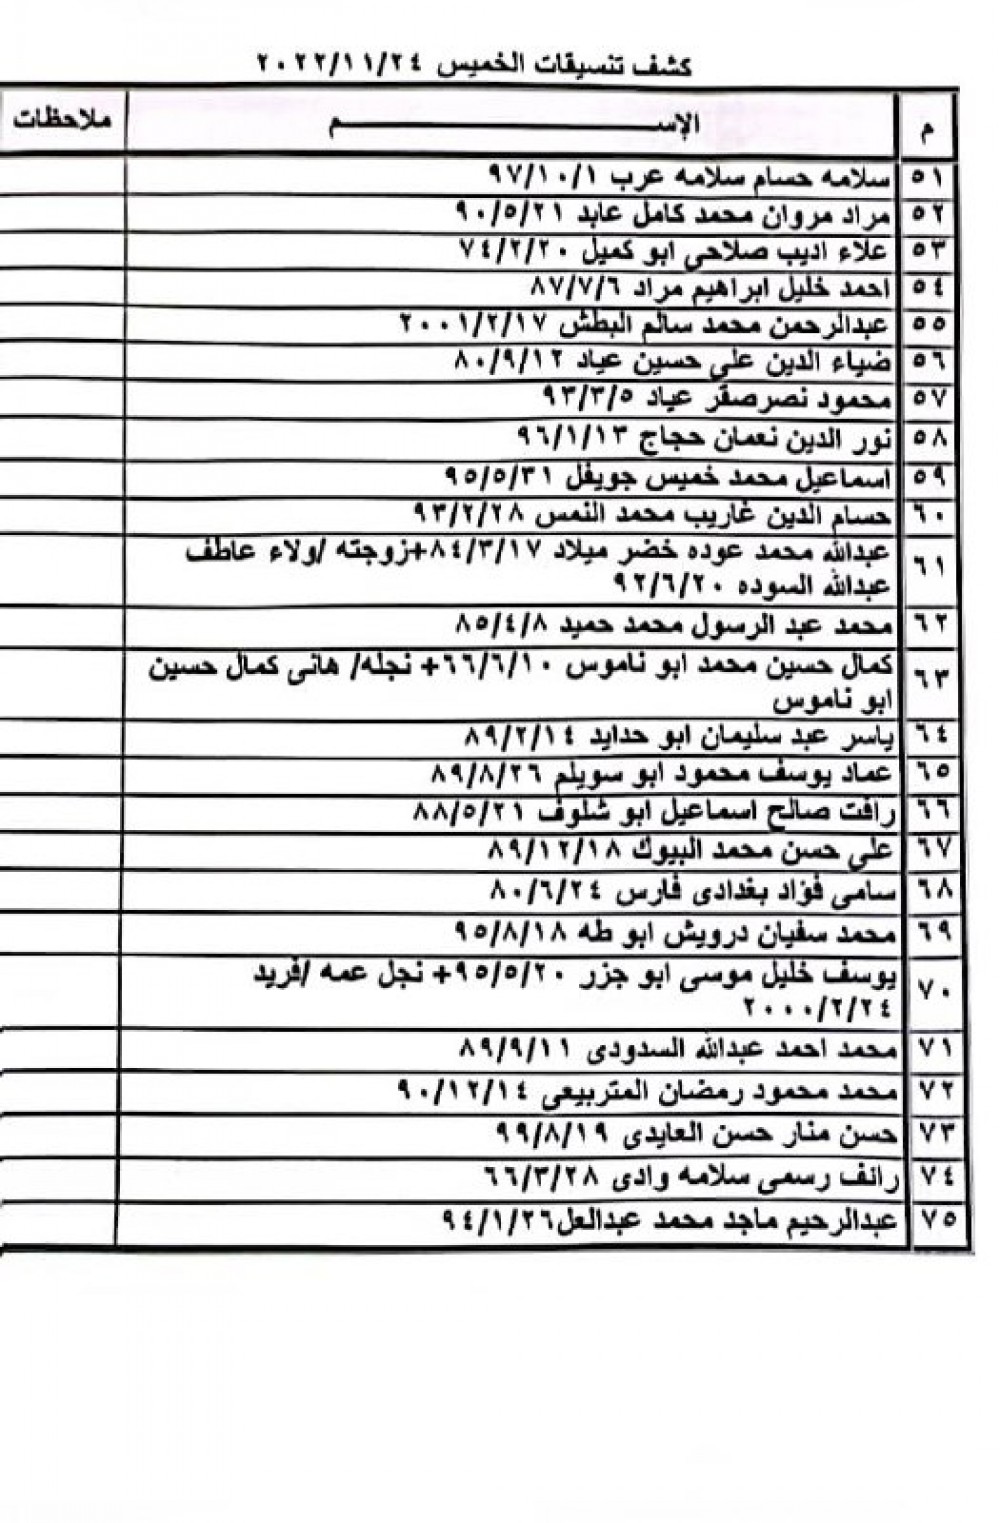 كشف تنسيقات الخميس ٢٠٢٢/١١/٢٤
م الإســـــــــــــم ملاحظات
٥١ سلامه حسام سلامه عرب ٩٧/١٠/١
٥٢ مراد مروان محمد كامل عابد ٩٠/٥/٢١
٥٣ علاء اديب صلاحي ابو كميل ٧٤/٢/٢٠
٥٤ احمد خليل ابراهيم مراد ٨٧/٧/٦
٥٥ عبدالرحمن محمد سالم البطش ٢٠٠١/٢/١٧
٥٦ ضياء الدين علي حسين عياد ٨٠/٩/١٢
٥٧ محمود نصرصقر عياد ٩٣/٣/٥
٥٨ نور الدين نعمان حجاج ٩٦/١/١٣
٥٩ اسماعيل محمد خميس جويفل ٩٥/٥/٣١
٦٠ حسام الدين غاريب محمد النمس ٩٣/٢/٢٨
٦١ عبدالله محمد عوده خضر ميلاد ٨٤/٣/١٧+زوجته /ولاء عاطف
عبدالله السوده ٩٢/٦/٢٠
٦٢ محمد عبد الرسول محمد حميد ٨٥/٤/٨
٦٣ كمال حسين محمد ابو ناموس ٦٦/٦/١٠+ نجله/ هانى كمال حسين
ابو ناموس
٦٤ ياسر عبد سليمان ابو حدايد ٨٩/٢/١٤
٦٥ عماد يوسف محمود ابو سويلم ٨٩/٨/٢٦
٦٦ رافت صالح اسماعيل ابو شلوف ٨٨/٥/٢١
٦٧ علي حسن محمد البيوك ٨٩/١٢/١٨
٦٨ سامى فؤاد بغدادى فارس ٨٠/٦/٢٤
٦٩ محمد سفيان درويش ابو طه ٩٥/٨/١٨
٧٠ يوسف خليل موسى ابو جزر ٩٥/٥/٢٠+ نجل عمه /فريد
٢٠٠٠/٢/٢٤
٧١ محمد احمد عبدالله السدودى ٨٩/٩/١١
٧٢ محمد محمود رمضان المتربيعى ٩٠/١٢/١٤
٧٣ حسن منار حسن العايدى ٩٩/٨/١٩
٧٤ رائف رسمى سلامه وادى ٦٦/٣/٢٨
٧٥ عبدالرحيم ماجد محمد عبدالعل٩٤/١/٢٦